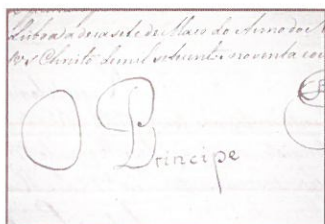 Lisboa a dezasete de Maio do Anno do N
Christo de mil setecent. noventa e
O Principe